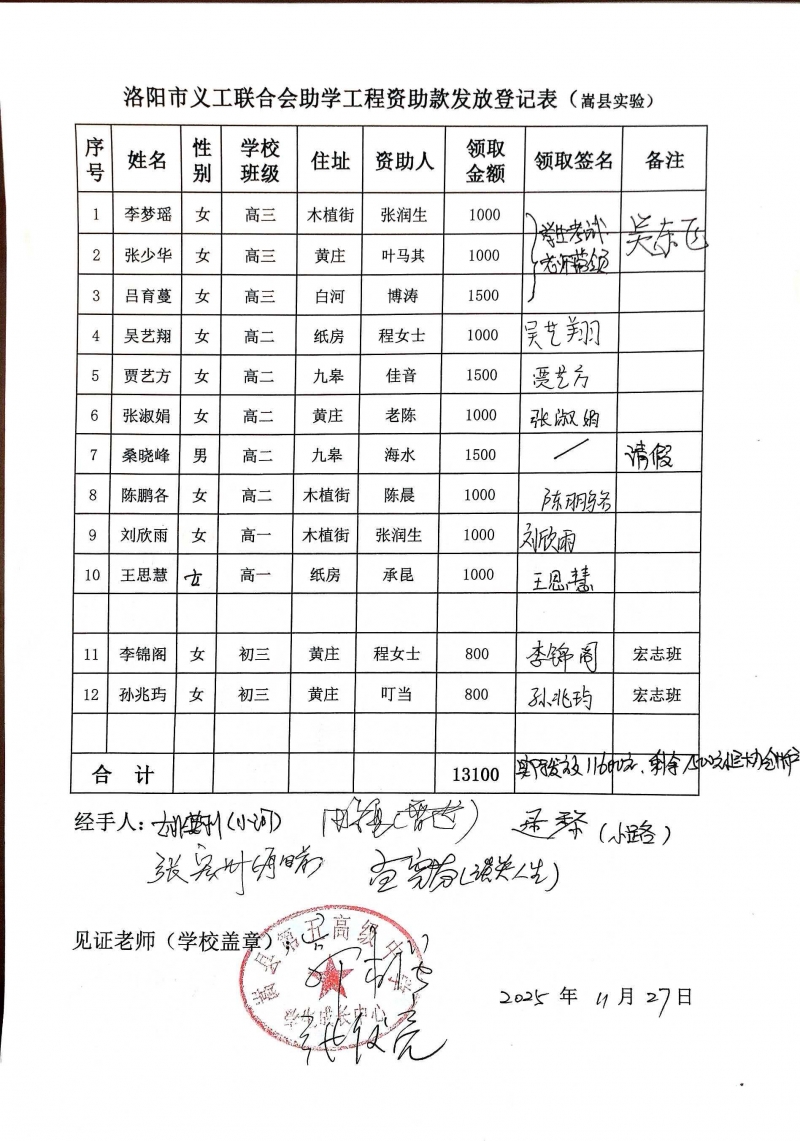 洛阳市义工联合会助学工程资助款发放登记表（嵩县实验）
序号 姓名 性别 学校班级 住址 资助人 领取金额 领取签名 备注
1 李梦瑶 女 高三 木植街 张润生 1000 学生考试 吴东飞
2 张少华 女 高三 黄庄 叶马其 1000 老师带领
3 吕育蔓 女 高三 白河 博涛 1500
4 吴艺翔 女 高二 纸房 程女士 1000 吴艺翔
5 贾艺方 女 高二 九皋 佳音 1500 贾艺方
6 张淑娟 女 高二 黄庄 老陈 1000 张淑娟
7 桑晓峰 男 高二 九皋 海水 1500 / 请假
8 陈鹏各 女 高二 木植街 陈晨 1000 陈鹏各
9 刘欣雨 女 高一 木植街 张润生 1000 刘欣雨
10 王思慧 女 高一 纸房 承昆 1000 王思慧
11 李锦阁 女 初三 黄庄 程女士 800 李锦阁 宏志班
12 孙兆玙 女 初三 黄庄 叮当 800 孙兆玙 宏志班
合计 13100 实际发放11600元、剩余1500元
经手人： (小河) (小路)
张
见证老师（学校盖章）：
嵩县第五高级中学
学生成长中心
2025 年 11 月 27 日